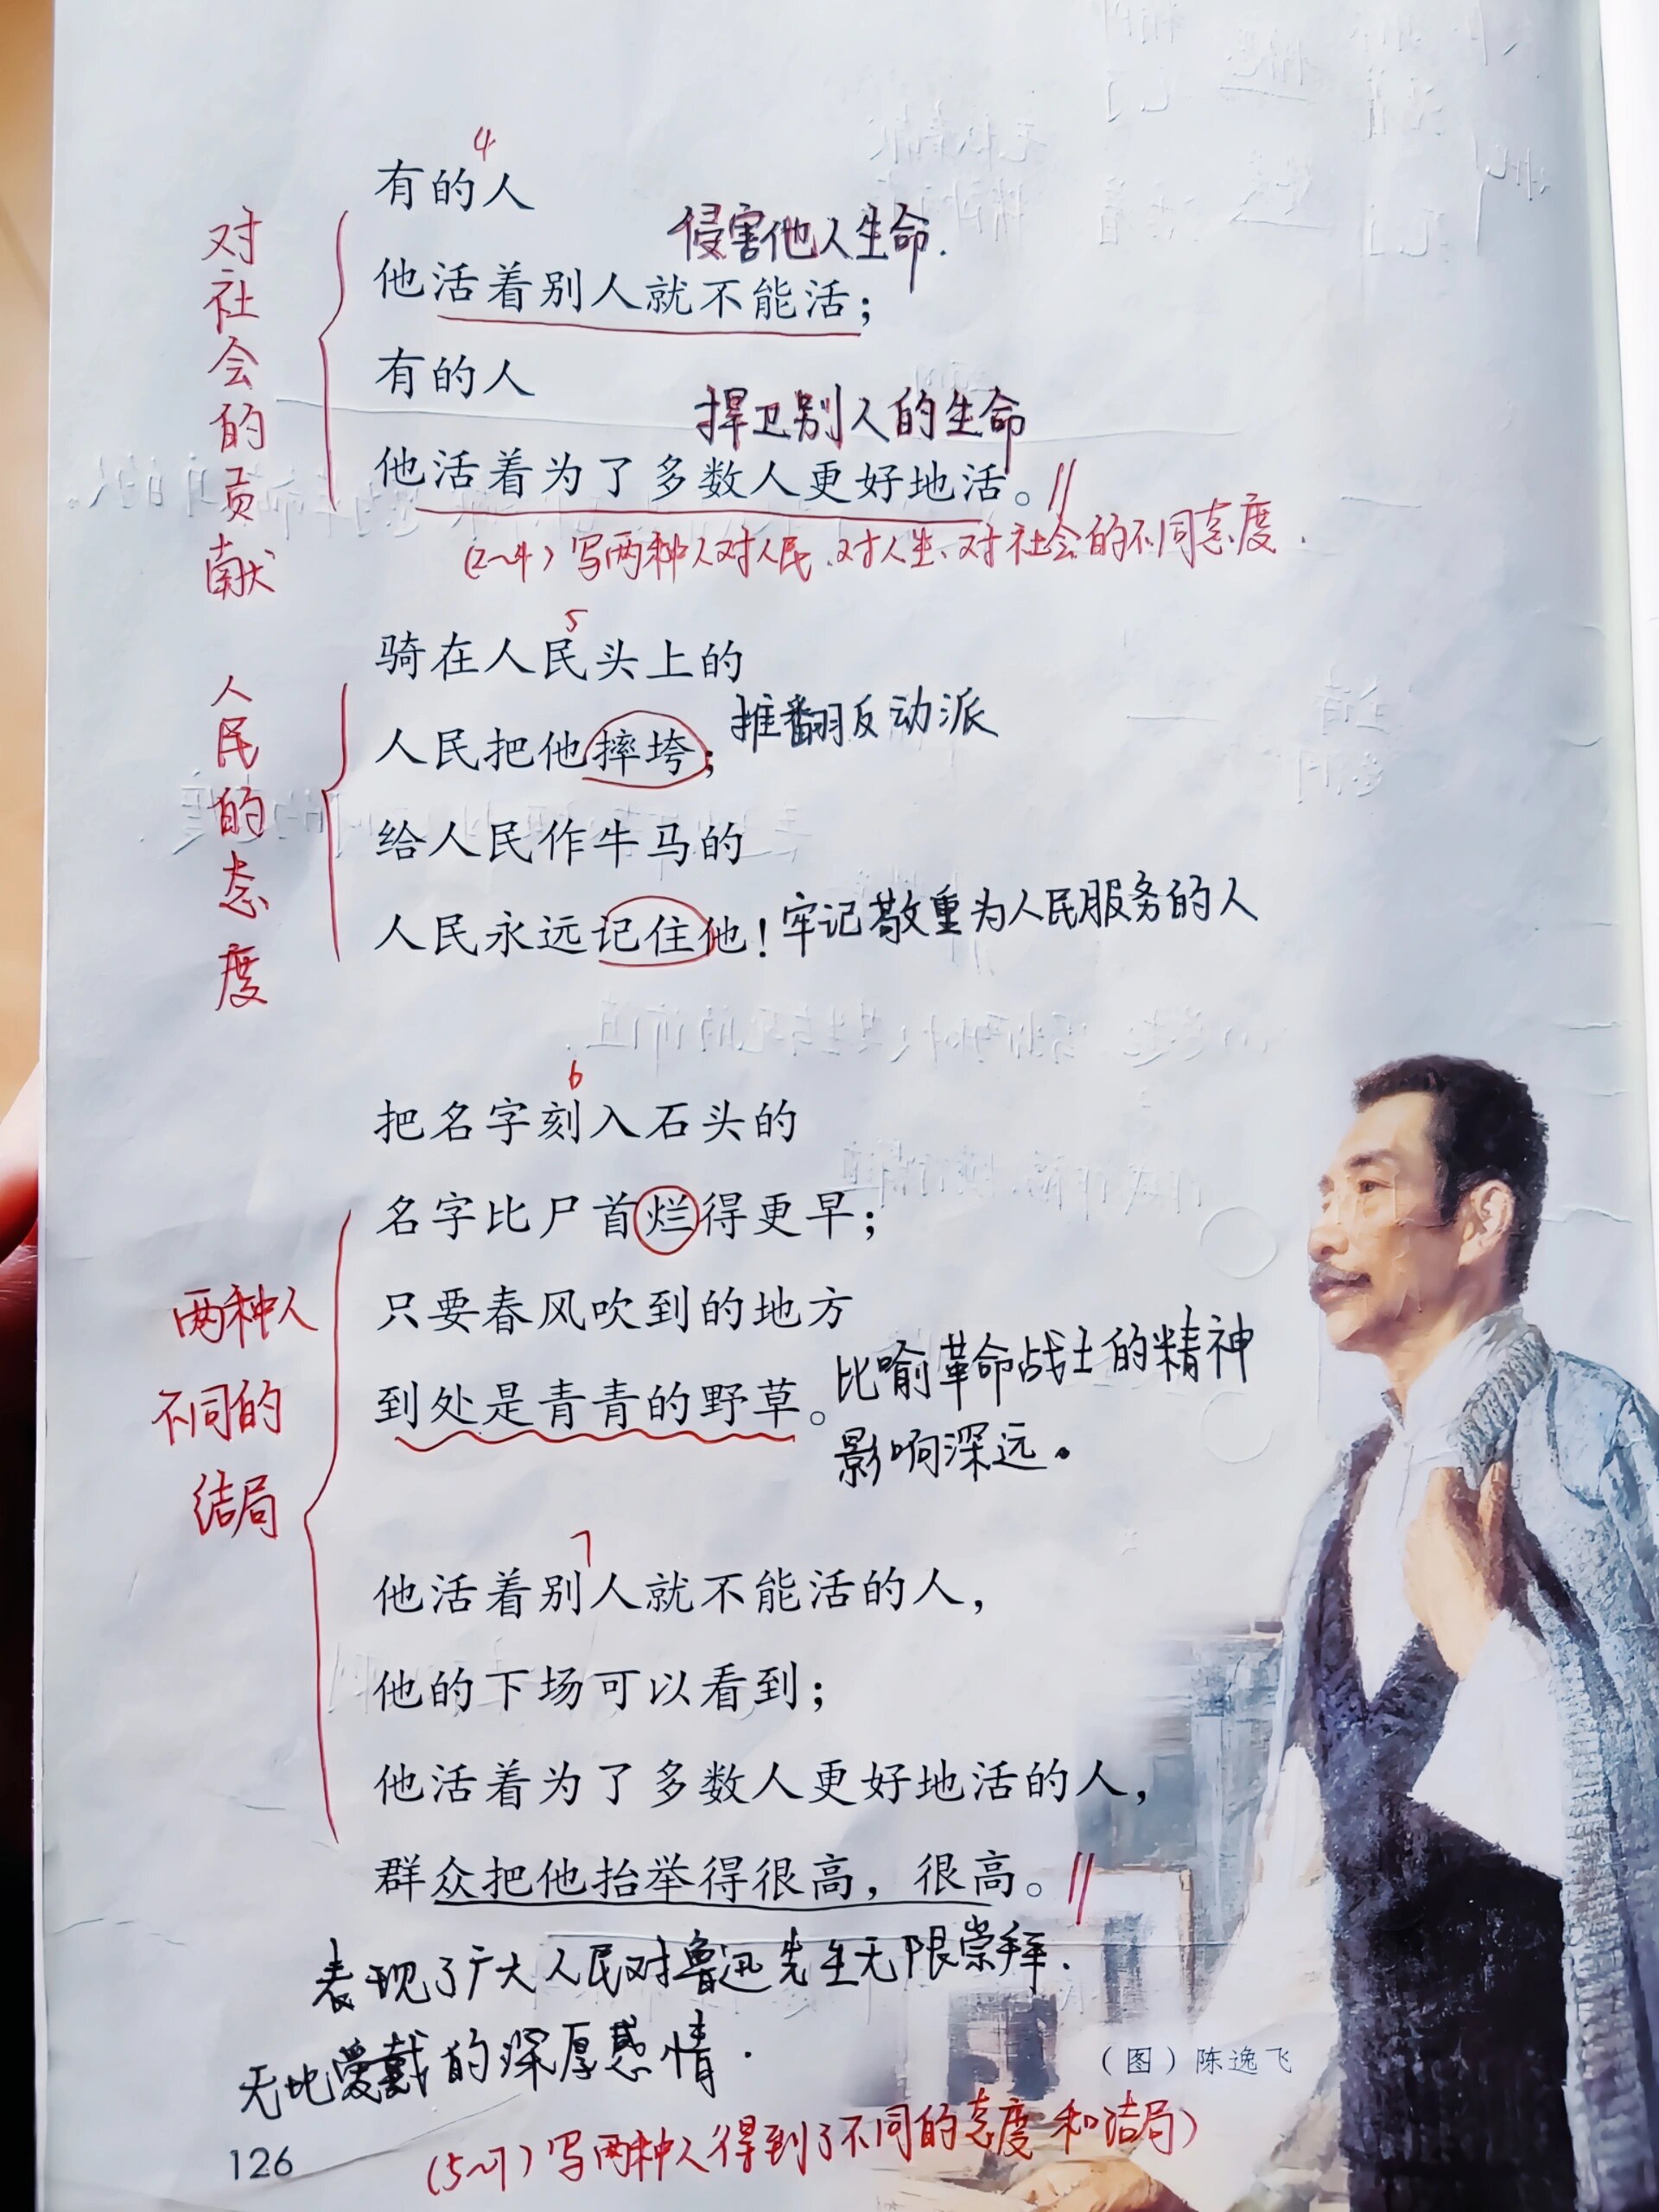 4
有的人
侵害他人生命.
他活着别人就不能活；
有的人
捍卫别人的生命
他活着为了多数人更好地活。//
对社会的贡献
(2~4) 写两种人对人民、对人生、对社会的不同态度.
5
骑在人民头上的
人民把他摔垮； 推翻反动派
给人民作牛马的
人民永远记住他！ 牢记敬重为人民服务的人
人民的态度
6
把名字刻入石头的
名字比尸首烂得更早；
只要春风吹到的地方
到处是青青的野草。 比喻革命战士的精神
影响深远。
两种人
不同的
结局
7
他活着别人就不能活的人，
他的下场可以看到；
他活着为了多数人更好地活的人，
群众把他抬举得很高，很高。//
表现了广大人民对鲁迅先生无限崇拜.
无比爱戴的深厚感情.
（图）陈逸飞
(5~7) 写两种人得到了不同的态度和结局)
126